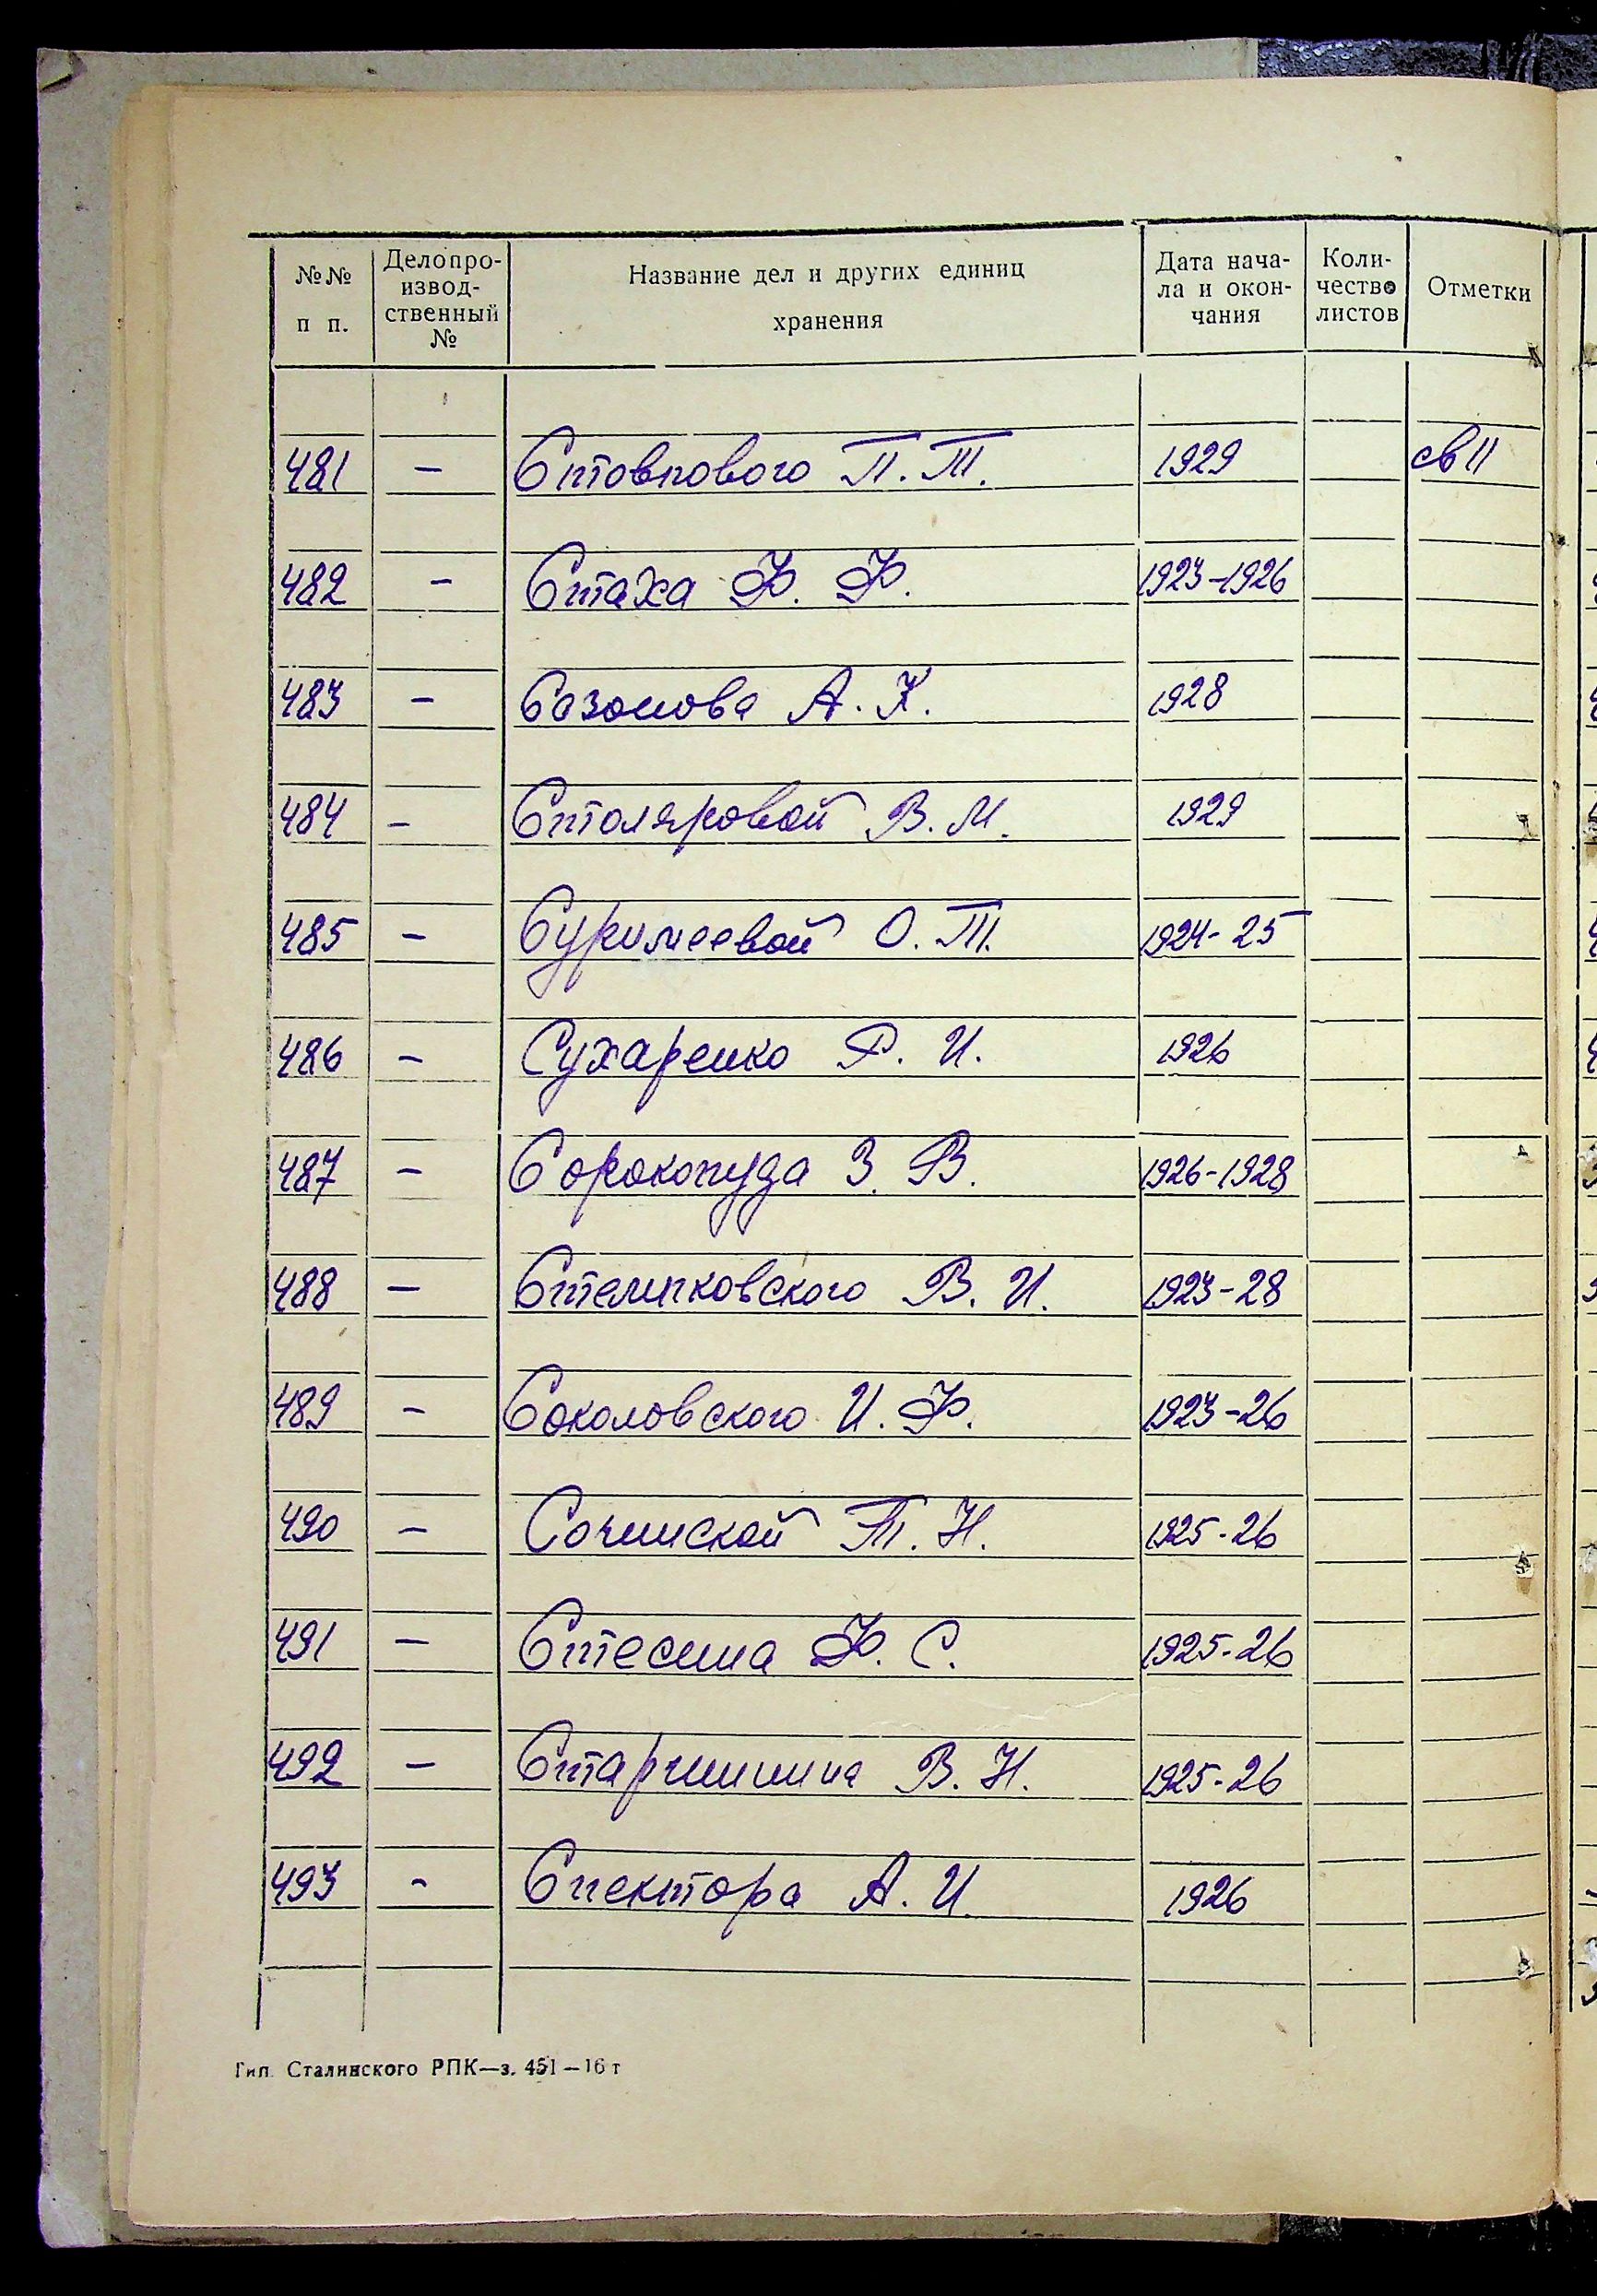 №№ п п. Делопро-извод-ственный № Название дел и других единиц хранения Дата нача-ла и окон-чания Коли-чество листов Отметки
481 — Стовпового П. Т. 1929 св 11
482 — Стаха Ф. Ф. 1923-1926
483 — Сазонова А. К. 1928
484 — Столяровой В. М. 1929
485 — О. Т. 1924-25
486 — Сухаренко Р. И. 1926
487 — Сорокопуда З. В. 1926-1928
488 — Стемпковского В. И. 1923-28
489 — Соколовского И. Ф. 1923-26
490 — Сочинской Т. Н. 1925-26
491 — Стесина Ф. С. 1925-26
492 — В. Н. 1925-26
493 - Спектора А. И. 1926
Тип. Сталинского РПК—з. 451—16 т